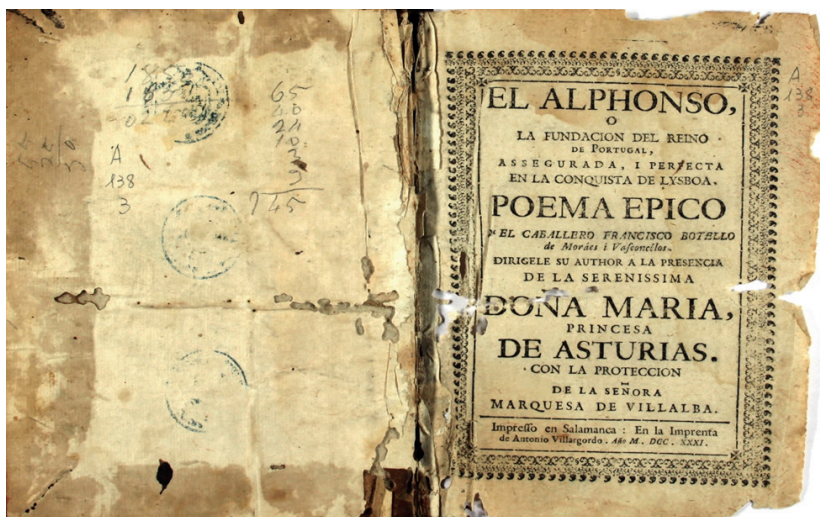 A
138
3
65
40
24
10
3
3
145
A
138
3
EL ALPHONSO,
O
LA FUNDACION DEL REINO
DE PORTUGAL,
ASSEGURADA, I PERFECTA
EN LA CONQUISTA DE LYSBOA.
POEMA EPICO
EL CABALLERO FRANCISCO BOTELLO
de Moráes i Vasconcellos.
DIRIGELE SU AUTHOR A LA PRESENCIA
DE LA SERENISSIMA
DOÑA MARIA,
PRINCESA
DE ASTURIAS.
CON LA PROTECCION
DE LA SEÑORA
MARQUESA DE VILLALBA.
Impresso en Salamanca : En la Imprenta
de Antonio Villargordo . Año M. DCC. XXXI.